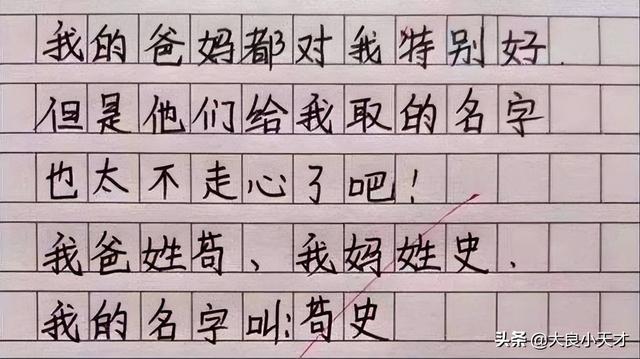 我的爸妈都对我特别好.
但是他们给我取的名字
也太不走心了吧!
我爸姓苟、我妈姓史.
我的名字叫:苟史
头条 @大良小天才